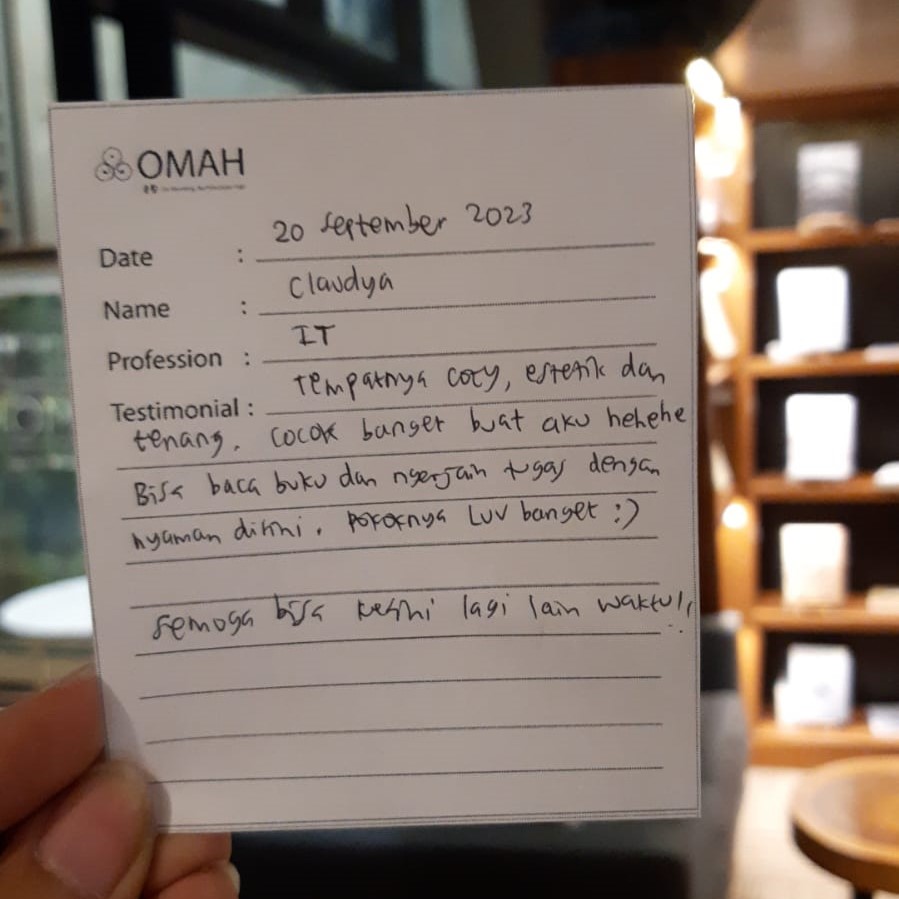 OMAH
Date : 20 september 2023
Name : Claudya
Profession : IT
Testimonial : tempatnya cozy, estetik dan
tenang. cocok banget buat aku hehehe
Bisa baca buku dan ngerjain tugas dengan
nyaman disini. pokoknya Luv banget :)
semoga bisa kesini lagi lain waktu!!